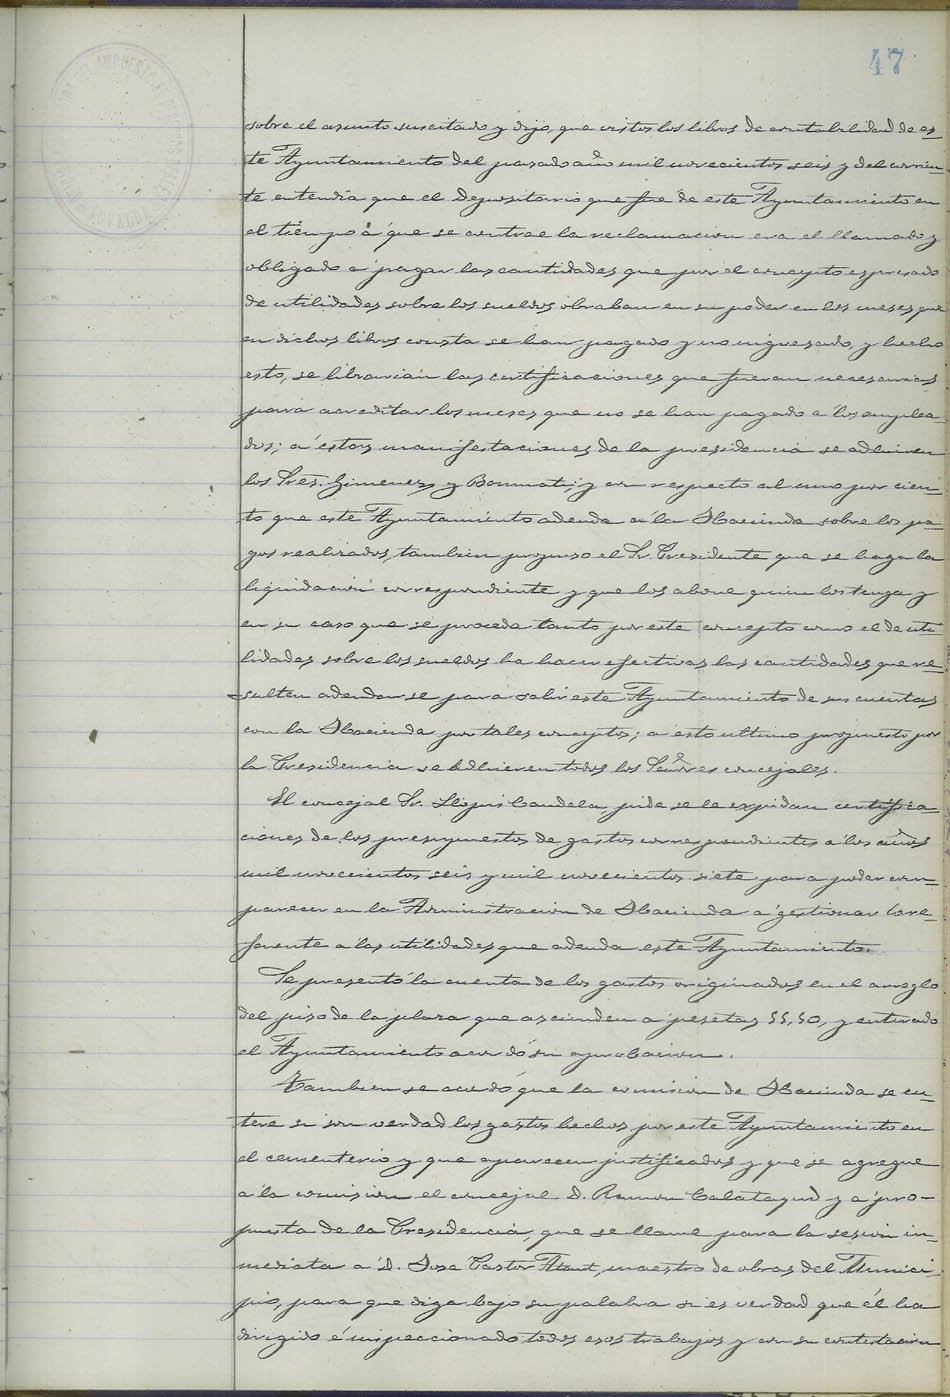 47
sobre el asunto suscitado y dijo, que vistos los libros de contabilidad de es-
te Ayuntamiento del pasado año mil novecientos seis y del corrien-
te entendia que el Depositario que fue de este Ayuntamiento en
el tiempo á que se contrae la reclamacion era el llamado y
obligado a pagar las cantidades que por el concepto espresado
de utilidades sobre los sueldos obraban en su poder en los meses que
en dichos libros consta se han pagado y no ingresado, y hecho
esto, se librarian las certificaciones que fueran necesarias
para acreditar los meses que no se han pagado a los emplea-
dos; a estas manifestaciones de la presidencia se adhieren
los Sres. Gimenez y Bonmati; y con respecto al uno por cien-
to que este Ayuntamiento adeuda a la Hacienda sobre los pa-
gos realizados, tambien propuso el Sr. Presidente que se haga la
liquidacion correspondiente y que los abone quien los tenga y
en su caso que se proceda tanto por este concepto como el de uti-
lidades sobre los sueldos ha hacer efectivas las cantidades que re-
sulten adeudarse para salir este Ayuntamiento de sus cuentas
con la Hacienda por tales conceptos; a esto ultimo propuesto por
la Presidencia se adhieren todos los Señores concejales.
El concejal Sr. Llopis Candela pide se le expidan certifica-
ciones de los presupuestos de gastos correspondientes a los años
mil novecientos seis y mil novecientos siete para poder com-
parecer en la Administracion de Hacienda a gestionar lo re-
ferente a las utilidades que adeuda este Ayuntamiento.
Se presentó la cuenta de los gastos originados en el arreglo
del piso de la plaza que ascienden a pesetas 55,50, y enterado
el Ayuntamiento acordó su aprobacion.
Tambien se acordó que la comision de Hacienda se en-
tere si son verdad los gastos hechos por este Ayuntamiento en
el cementerio y que aparecen justificados y que se agregue
a la comision el concejal D. Ramon Calatayud y a pro-
puesta de la Presidencia, que se llame para la sesion in-
mediata a D. Jose Pastor, maestro de obras del Munici-
pio, para que diga bajo su palabra si es verdad que él ha
dirigido é inspeccionado todos esos trabajos y con su contestacion